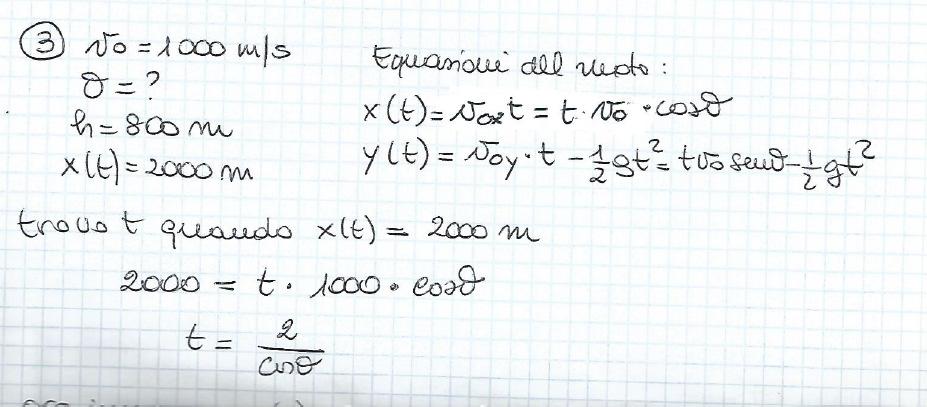 ③ v₀ = 1000 m/s
θ = ?
h = 800 m
x(t) = 2000 m
Equazioni del moto :
x(t) = v₀ₓt = t · v₀ · cosθ
y(t) = v₀y · t - 1/2 gt² = tv₀ senθ - 1/2 gt²
trovo t quando x(t) = 2000 m
2000 = t · 1000 · cosθ
t = 2/cosθ